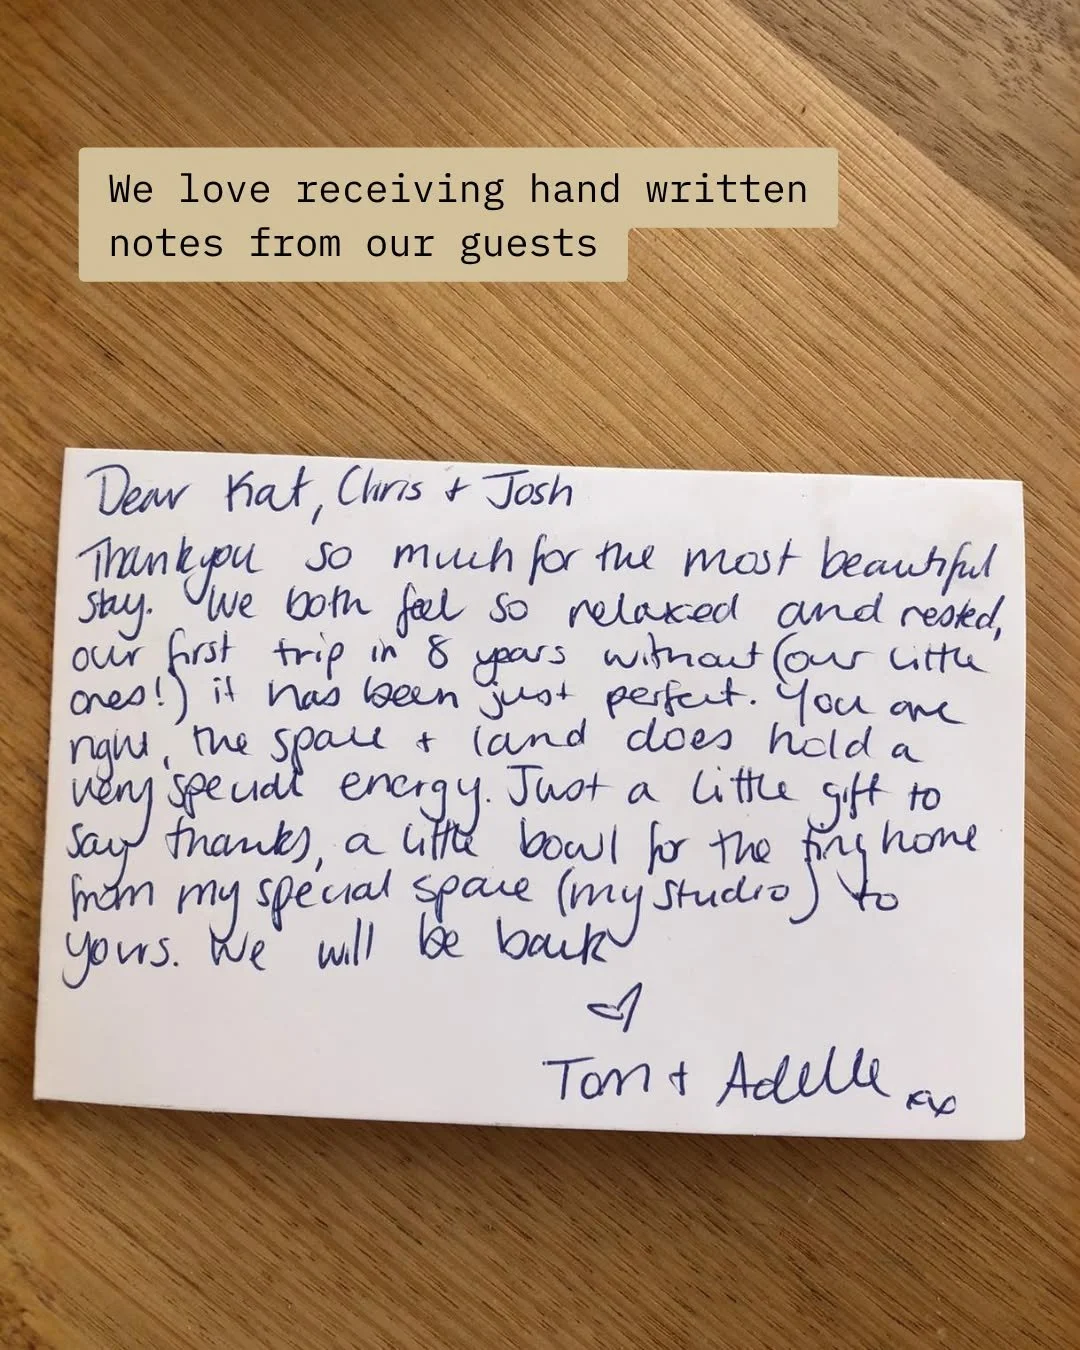 We love receiving hand written
notes from our guests
Dear Kat, Chris + Josh
Thankyou so much for the most beautiful
stay. We both feel so relaxed and rested,
our first trip in 8 years without (our little
ones!) it has been just perfect. You are
right, the space + land does hold a
very special energy. Just a little gift to
say thanks, a little bowl for the tiny home
from my special space (my studio) to
yours. We will be back
Tom + Adelle xx